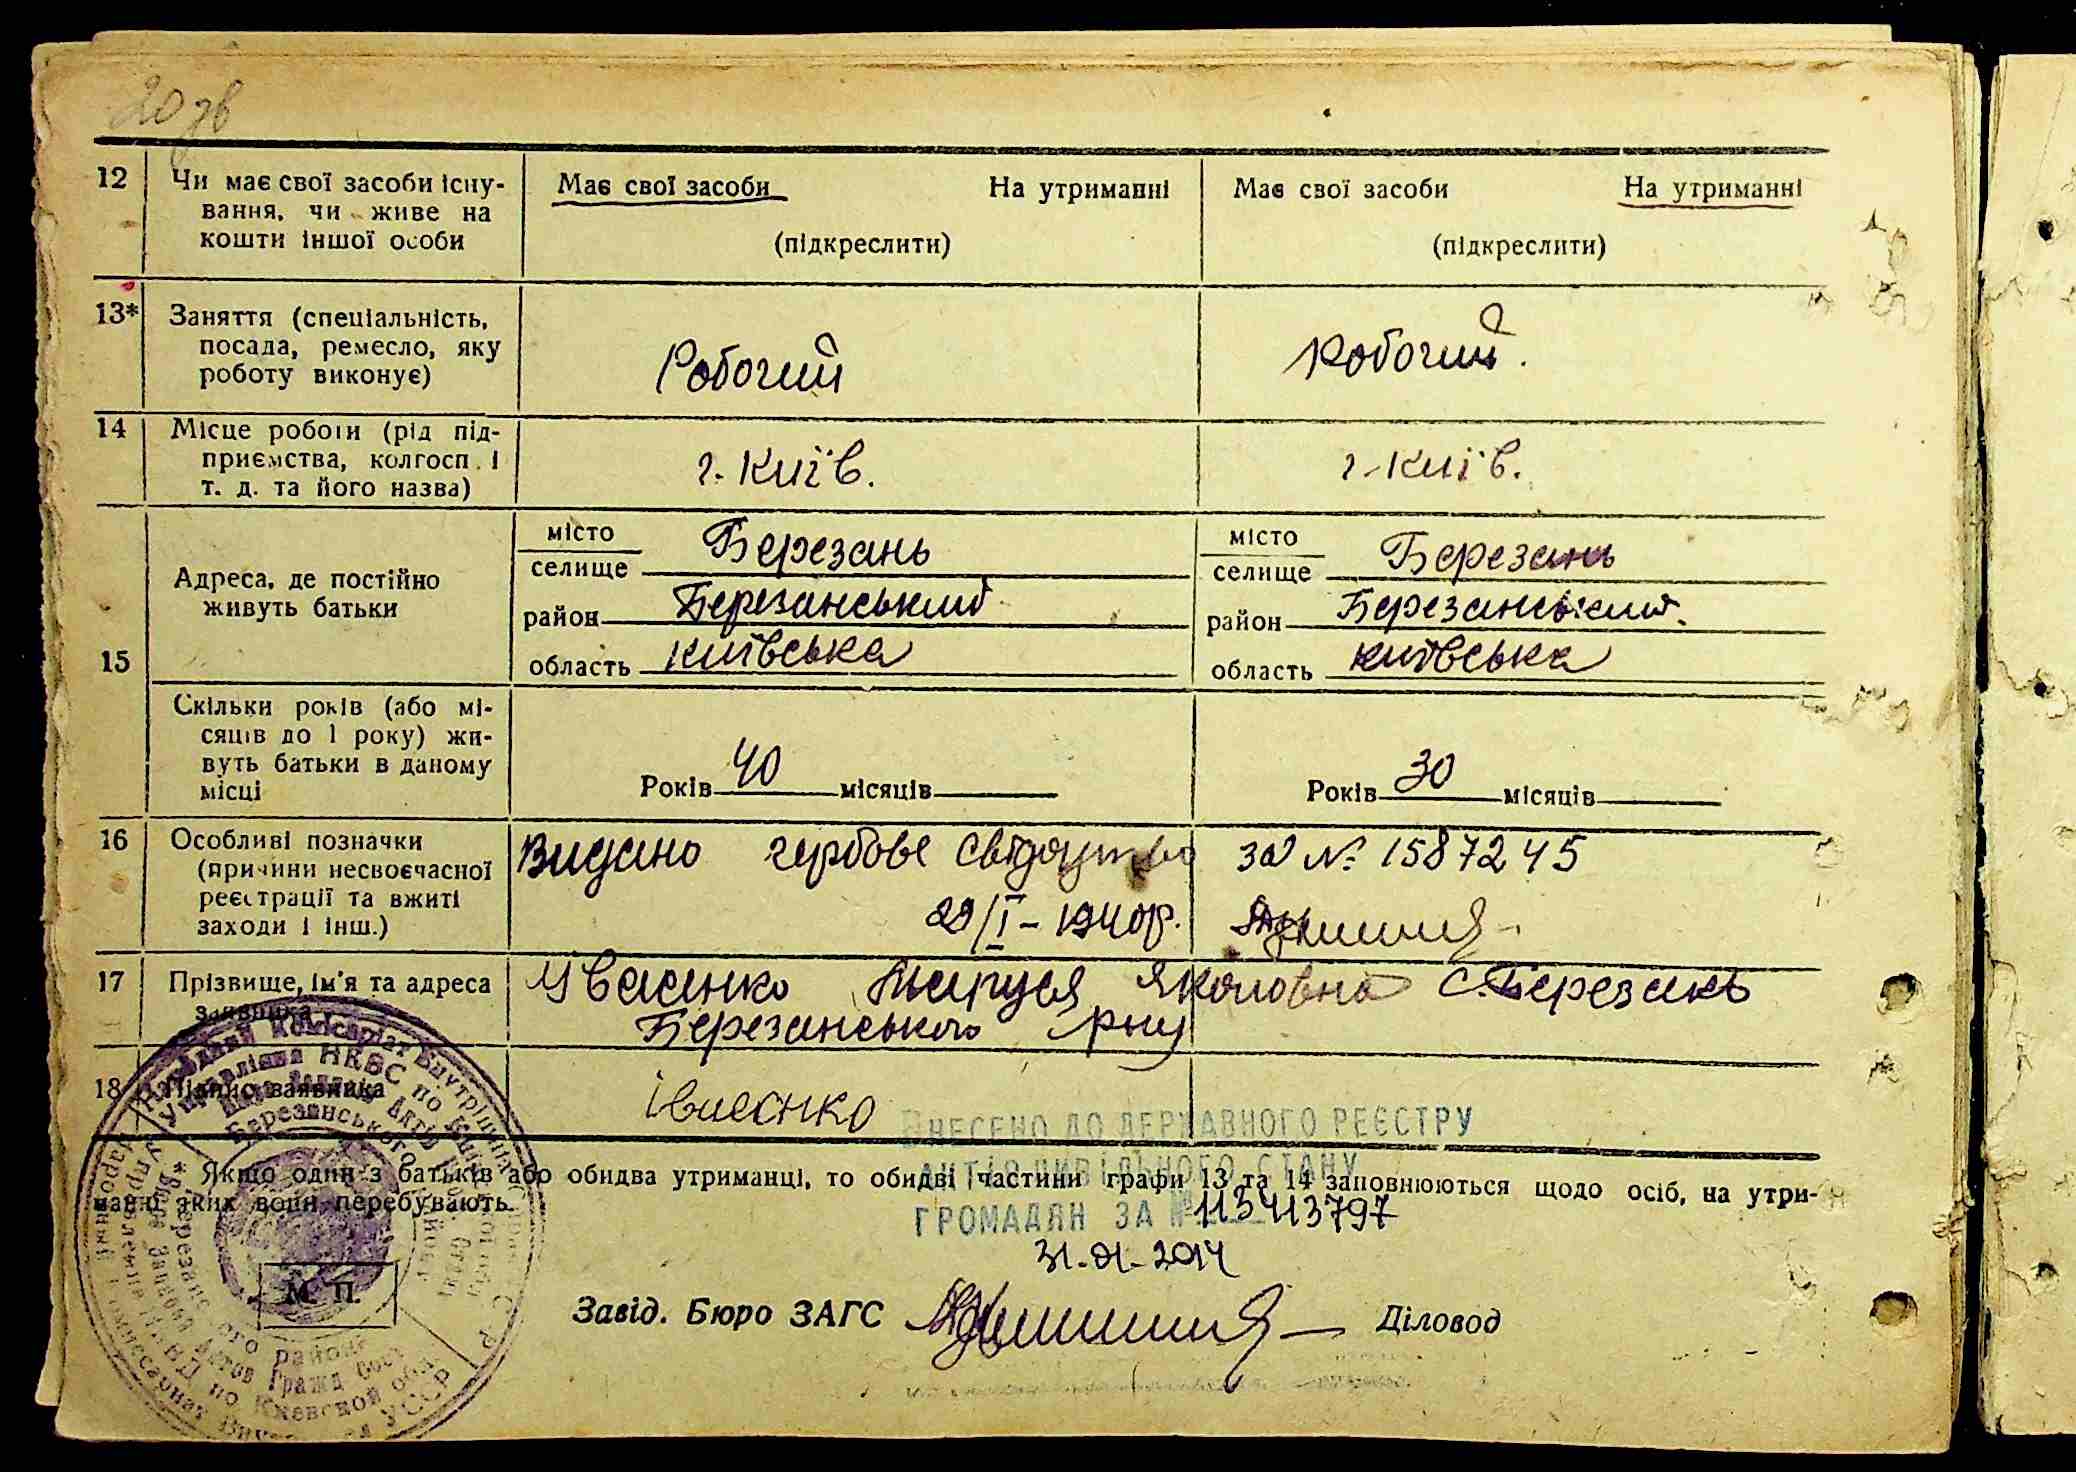 20 зв
12 Чи має свої засоби існу- Має свої засоби На утриманні Має свої засоби На утриманні
вання, чи живе на
кошти іншої особи (підкреслити) (підкреслити)
13* Заняття (спеціальність,
посада, ремесло, яку Робочий Робочий.
роботу виконує)
14 Місце роботи (рід під-
приємства, колгосп і г. Київ. г. Київ.
т. д. та його назва)
15 Адреса, де постійно
живуть батьки
місто
селище Березань
район Березанський
область київська
місто
селище Березань
район Березанський.
область київська
Скільки років (або мі-
сяців до 1 року) жи-
вуть батьки в даному
місці Років 40 місяців Років 30 місяців
16 Особливі позначки Видано гербове свідоцтво за № 1587245
(причини несвоєчасної
реєстрації та вжиті 29/I - 1940р.
заходи і інш.)
17 Прізвище, ім'я та адреса Ивасенко Маруся Яколовна с. Березань
заявника Березанського р-ну
18 Підпис заявника івасенко
ВНЕСЕНО ДО ДЕРЖАВНОГО РЕЄСТРУ
АКТІВ ЦИВІЛЬНОГО СТАНУ
Якщо один з батьків або обидва утриманці, то обидві частини графи 13 та 14 заповнюються щодо осіб, на утри-
манні яких вони перебувають.
ГРОМАДЯН ЗА № 113413797
31.01.2014
М. П.
Завід. Бюро ЗАГС Діловод
Народний Комісаріат Внутрішніх
Управління НКВС по
Березанського
Березанского района
Бюро Записей Актов Гражд Сост
Управление НКВД по Киевской обл
Народный Комиссариат УССР